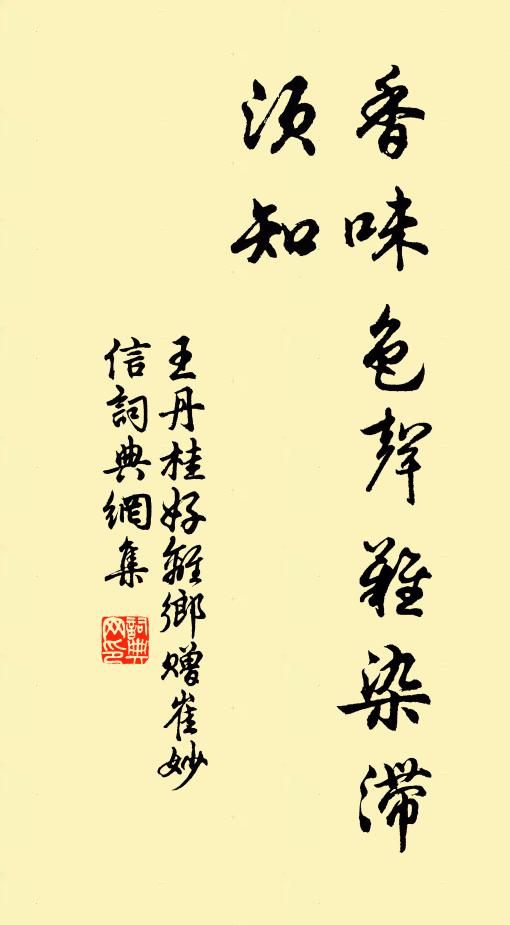 香味色聲難染滯
須知
王丹桂好離鄉贈崔妙
信詞典網集
詞典
网印